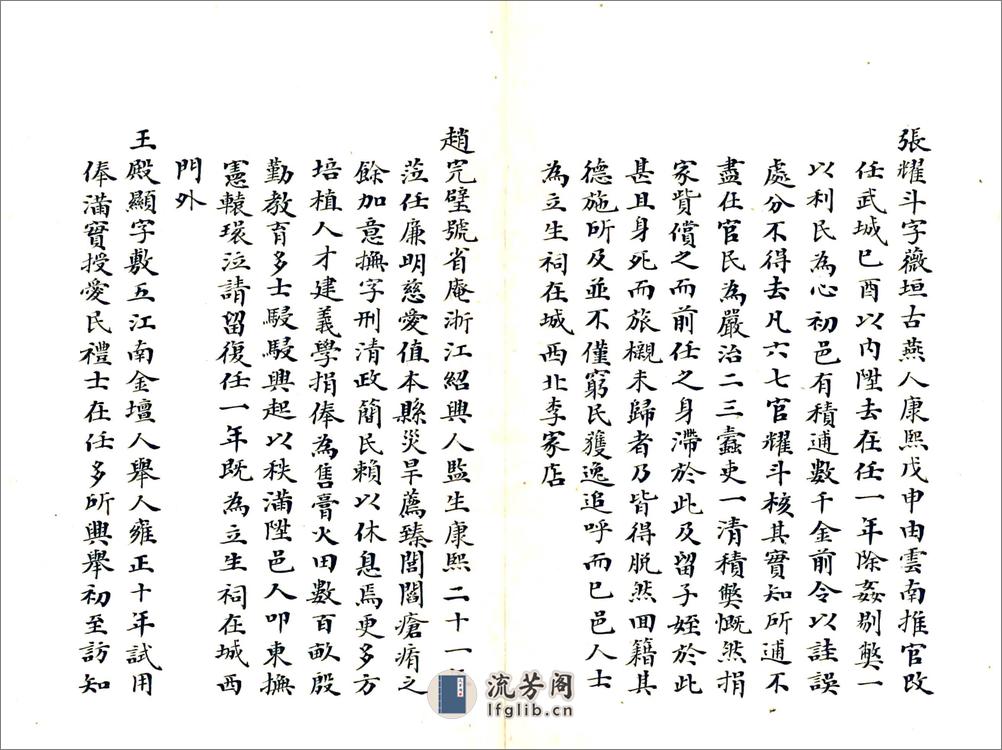 張耀斗字薇垣古燕人康熙戊申由雲南推官改
任武城巳酉以內陞去在任一年除姦剔獘一
以利民為心初邑有積逋數千金前令以詿誤
處分不得去凡六七官耀斗核其實知所逋不
盡在官民為嚴治二三蠧吏一清積獘慨然捐
家貲償之而前任之身滯於此及留子姪於此
甚且身死而旅櫬未歸者乃皆得脫然回籍其
德施所及並不僅窮民獲逸追呼而已邑人士
為立生祠在城西北李家店
趙完璧號省庵浙江紹興人監生康熙二十一
蒞任廉明慈愛值本縣災旱薦臻閭閻瘡痏之
餘加意撫字刑清政簡民賴以休息焉更多方
培植人才建義學捐俸為售膏火田數百畝殷
勤教育多士駸駸興起以秩滿陞邑人叩東撫
憲轅環泣請留復任一年既為立生祠在城西
門外
王殿顯字敷五江南金壇人舉人雍正十年試用
俸滿實授愛民禮士在任多所興舉初至訪知
流芳阁
lfglib.cn